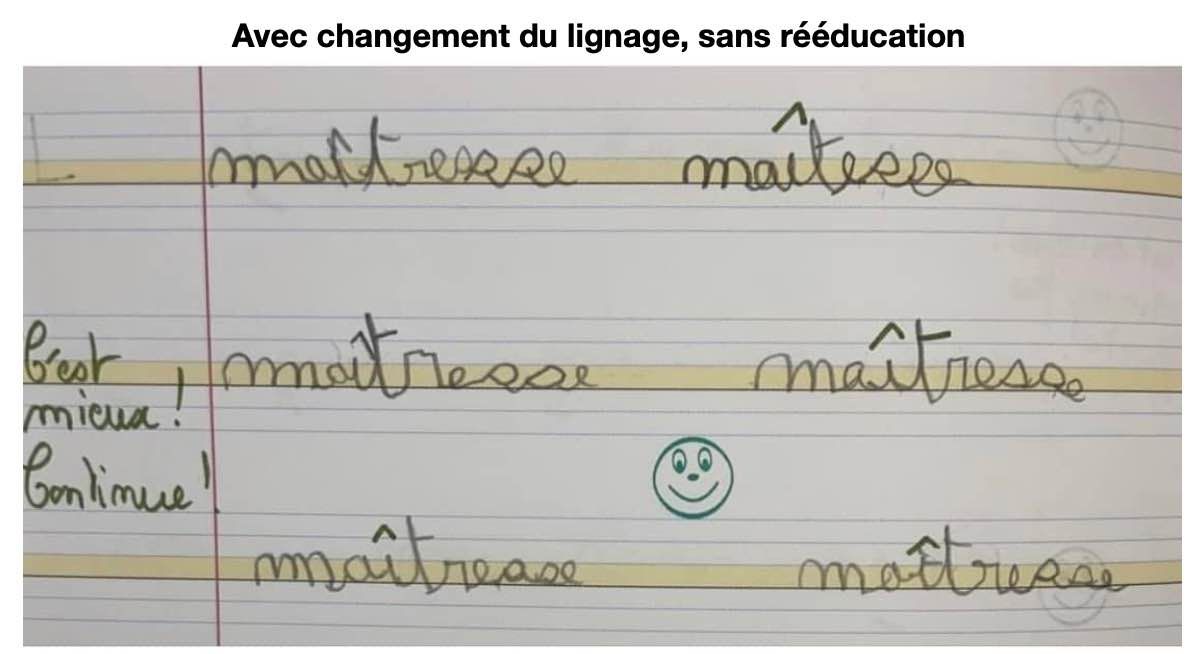 Avec changement du lignage, sans rééducation
maîtresse maîtesse
C'est mieux !
Continue !
maîtresse maîtresse
maîtresse maîtresse